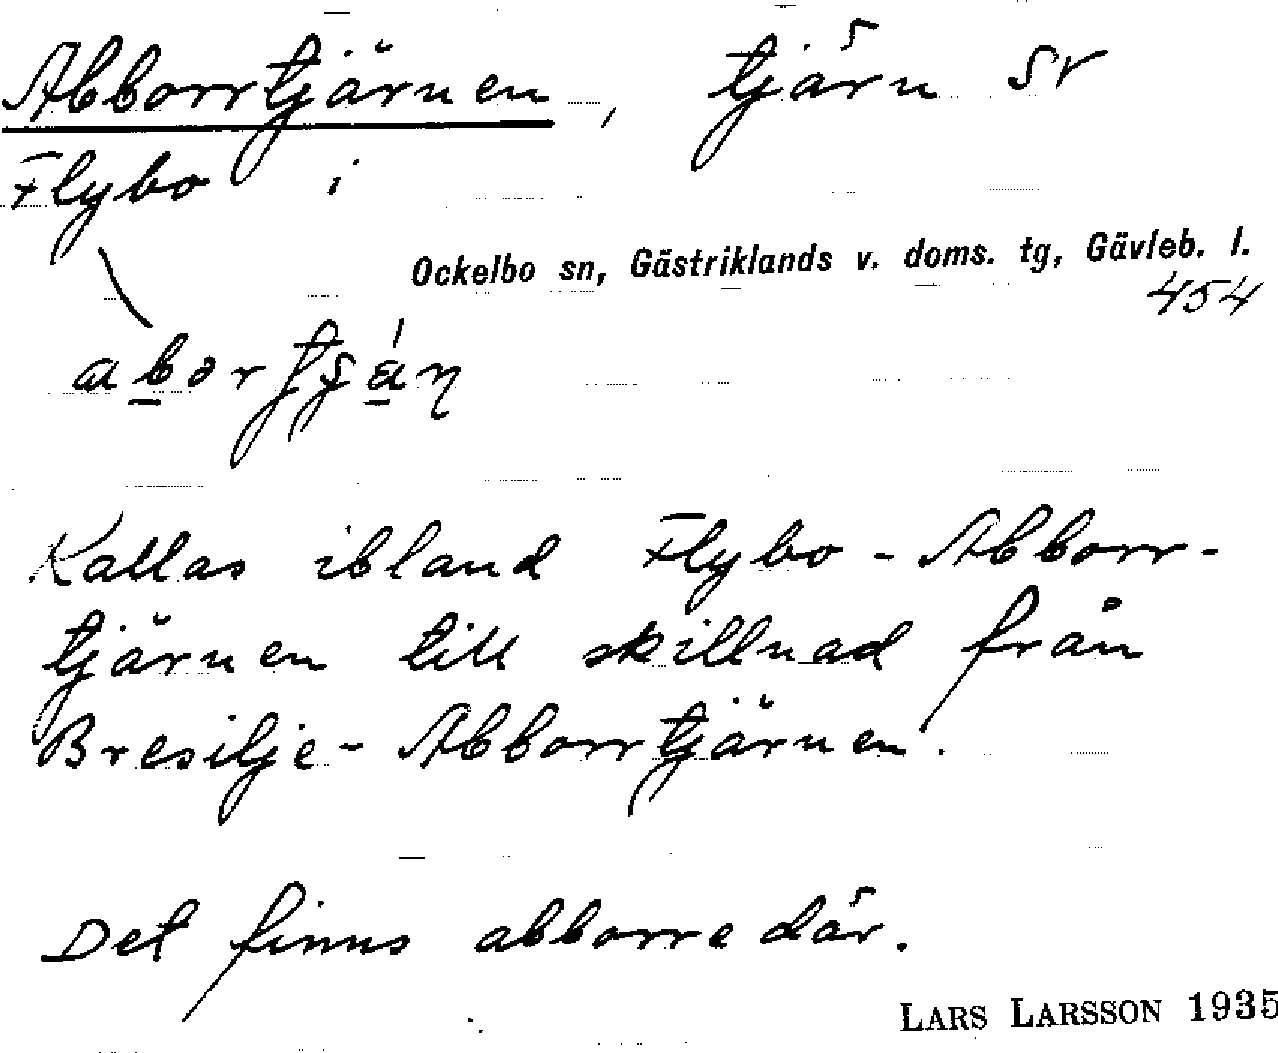 Abborrtjärnen, tjärn SV
Flybo i
Ockelbo sn, Gästriklands v. doms. tg, Gävleb. l.
454
Kallas ibland Flybo-Abborr-
tjärnen till skillnad från
Bresilje-Abborrtjärnen.
Det finns abborre där.
LARS LARSSON 1935